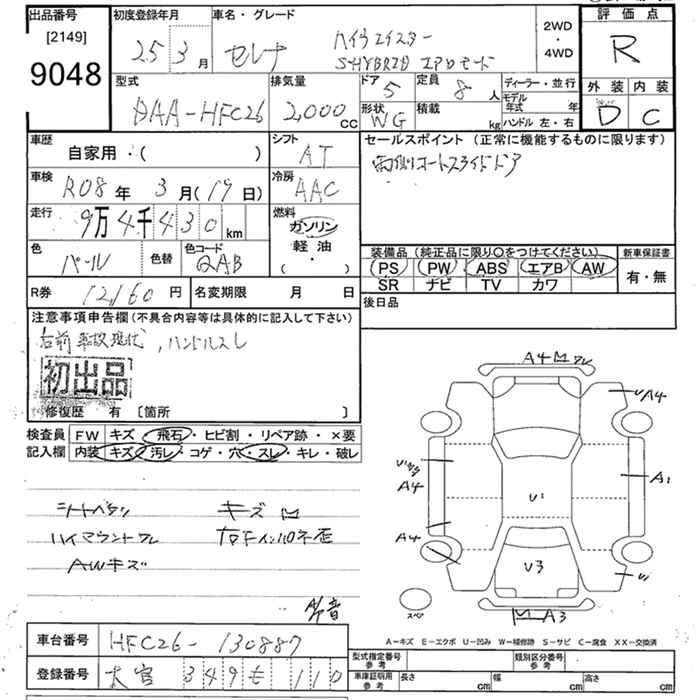 出品番号
[2149]
9048
初度登録年月
25 3月
車名・グレード
セレナ ハイウェイスター
S-HYBRID エアロモード
2WD
・
4WD
評価点
R
型式
DAA-HFC26
排気量
2,000 CC
ドア
5
定員
8 人
形状
WG
積載
kg
ディーラー・並行
モデル年式 年
ハンドル 左・右
外装 内装
D C
車歴
自家用・( )
シフト
AT
セールスポイント (正常に機能するものに限ります)
両側オートスライドドア
車検
R08年 3月(19日)
冷房
AAC
走行
9万4千430km
燃料
ガソリン
軽油
( ・ )
色
パール
色替
色コード
QAB
装備品 (純正品に限り○をつけてください)
PS PW ABS エアB AW
SR ナビ TV カワ
新車保証書
有・無
R券 12,160円
名変期限 月 日
後日品
注意事項申告欄 (不具合内容等は具体的に記入して下さい)
右前 事故現状, ハンドルスレ
初出品
修復歴 有 [箇所 ]
検査員
記入欄
FW キズ・飛石・ヒビ割・リペア跡・×要
内装 キズ・汚レ・コゲ・穴・スレ・キレ・破レ
シートヘタリ キズ
ハイマウントワレ
AWキズ
A4
A4
A4
A4
A1
U1
U3
A3
スペア
A－キズ E－エクボ U－凹み W－補修跡 S－サビ C－腐食 XX－交換済
車台番号 HFC26-130887
登録番号 大宮 349 も 110
型式指定番号
参考
類別区分番号
参考
車庫証明用
参考
長さ cm 幅 cm 高さ cm